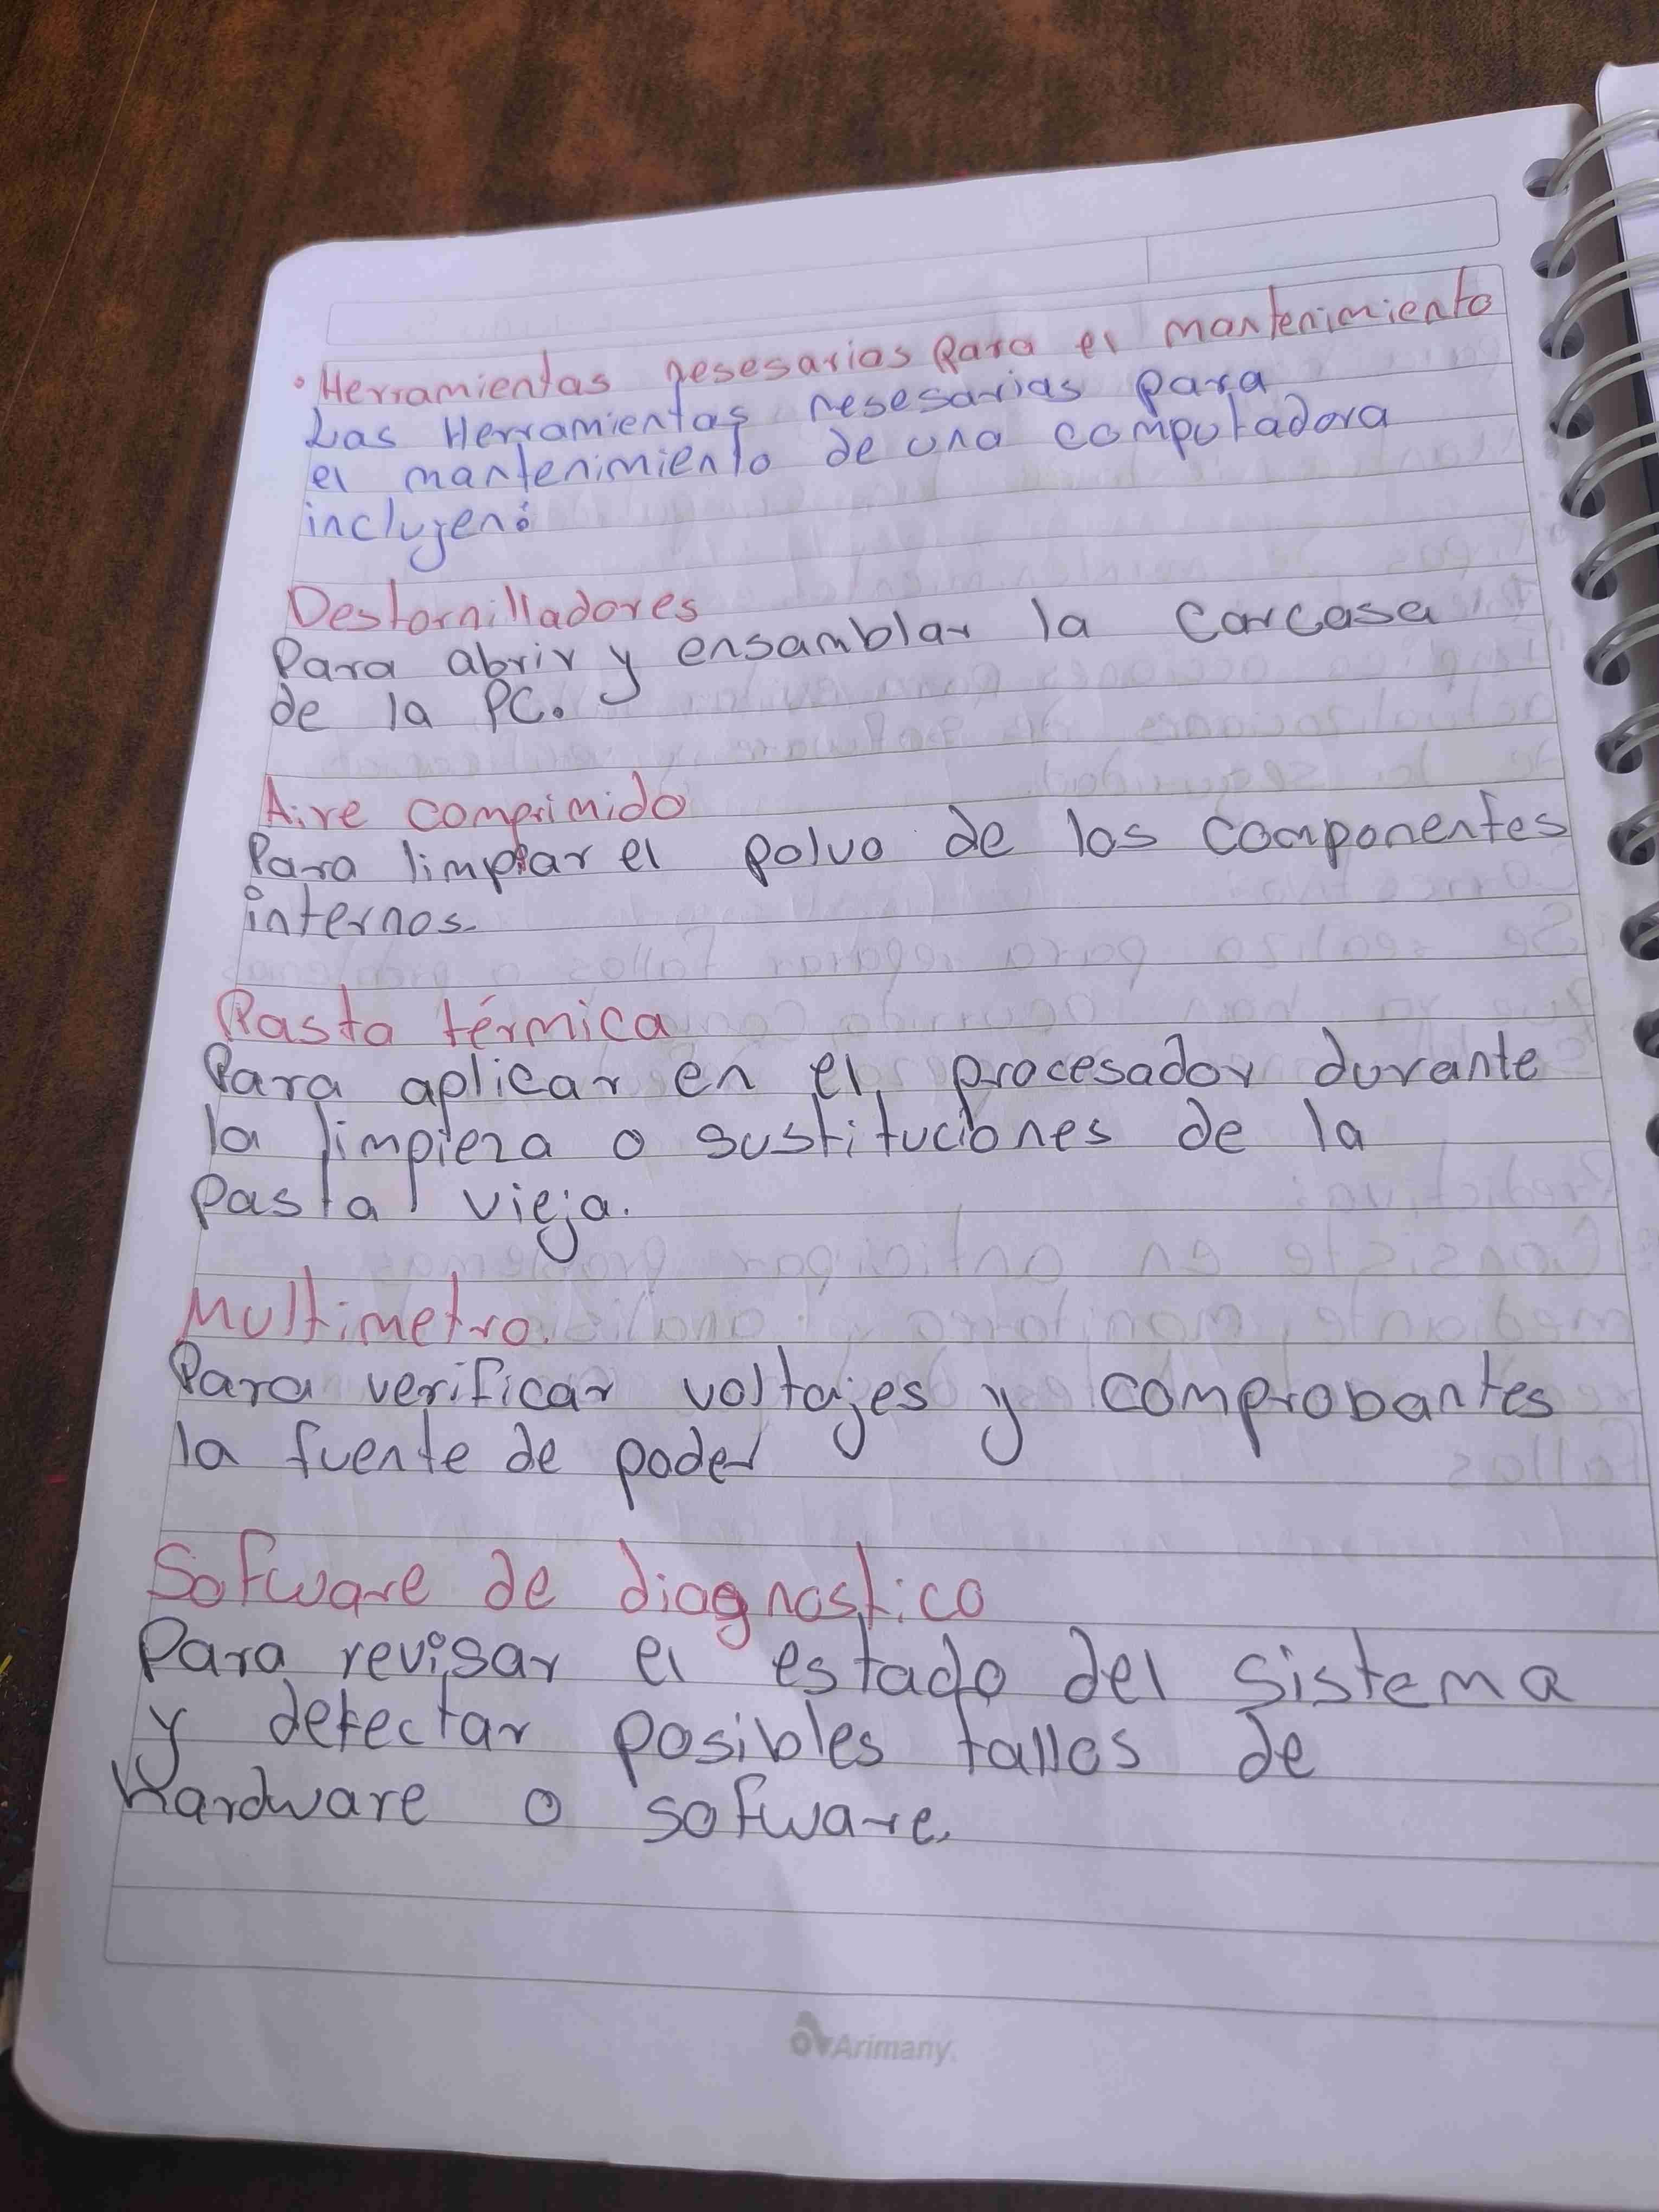 • Herramientas nesesarias para el mantenimiento
Las Herramientas nesesarias para
el mantenimiento de una computadora
incluyen:
Destornilladores
Para abrir y ensamblar la carcasa
de la PC.
Aire comprimido
Para limpiar el polvo de los componentes
internos.
Pasta térmica
Para aplicar en el procesador durante
la limpieza o sustituciones de la
pasta vieja.
Multimetro.
Para verificar voltajes y comprobantes
la fuente de poder
Sofware de diagnostico
Para revisar el estado del sistema
y detectar posibles fallos de
Hardware o sofware.
Arimany.